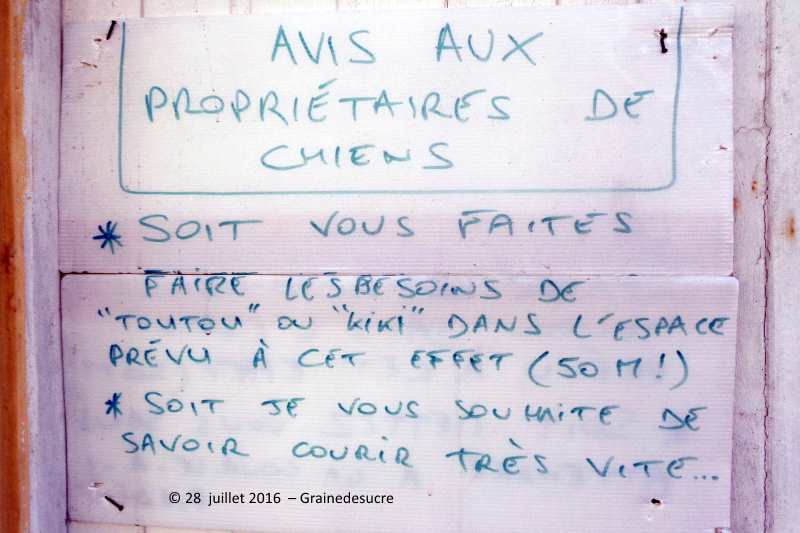 AVIS AUX
PROPRIÉTAIRES DE
CHIENS
* SOIT VOUS FAITES
FAIRE LES BESOINS DE
"TOUTOU" OU "KIKI" DANS L'ESPACE
PRÉVU À CET EFFET (50 M!)
* SOIT JE VOUS SOUHAITE DE
SAVOIR COURIR TRÈS VITE...
© 28 juillet 2016 – Grainedesucre